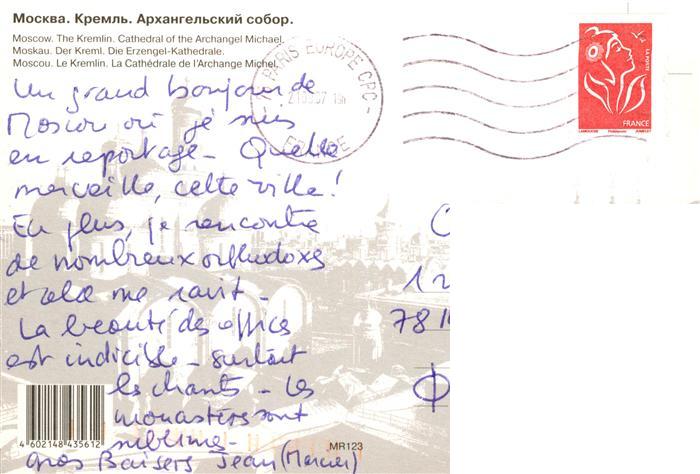 Москва. Кремль. Архангельский собор.
Moscow. The Kremlin. Cathedral of the Archangel Michael.
Moskau. Der Kreml. Die Erzengel-Kathedrale.
Moscou. Le Kremlin. La Cathédrale de l'Archange Michel.
Un grand bonjour de
Moscou où je suis
en reportage - Quelle
merveille, cette ville!
En plus, je rencontre
de nombreux orthodoxes
et cela me ravit -
La beauté des offices
est indicible - surtout
les chants - Les
monastères sont
sublimes -
Gros Baisers Jean (Mercier)
4 602148 435612
MR123
PARIS EUROPE CPC
FRANCE
LA POSTE
FRANCE
LAMOUCHE
JUMELET
78